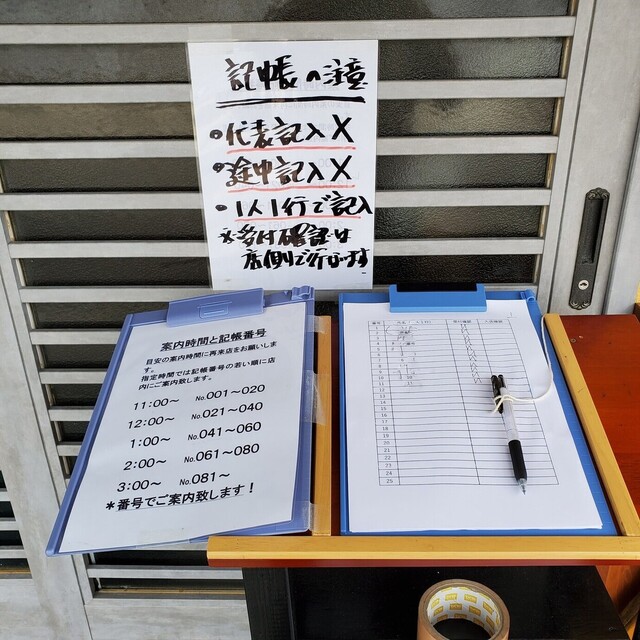 記帳の注意
・代表記入X
・途中記入X
・1人1行で記入
※受付確認は
店側で行います
案内時間と記帳番号
目安の案内時間に再来店をお願いしま
す。
指定時間では記帳番号の若い順に店
内にご案内致します。
11:00～ No.001～020
12:00～ No.021～040
1:00～ No.041～060
2:00～ No.061～080
3:00～ No.081～
＊番号でご案内致します！
番号 受付確認 入店確認
1
2
3
4
5
6
7
8
9
10
11
12
13
14
15
16
17
18
19
20
21
22
23
24
25